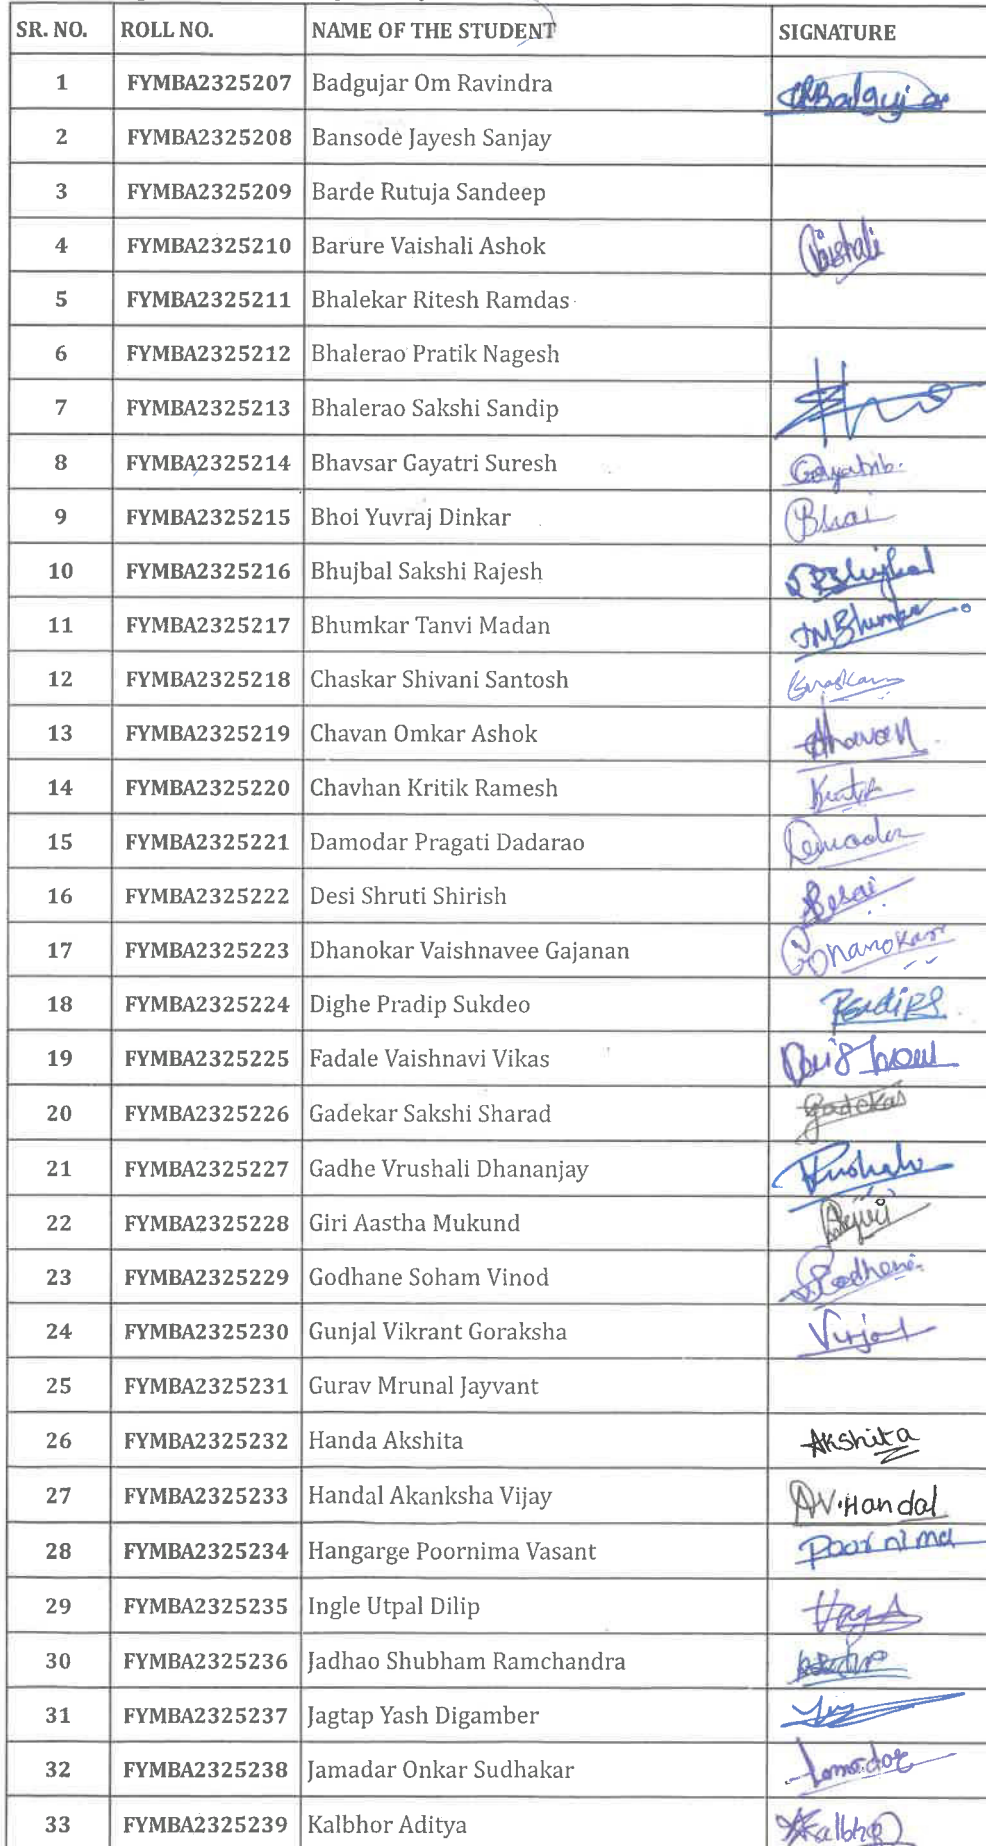 SR. NO. ROLL NO. NAME OF THE STUDENT SIGNATURE
1 FYMBA2325207 Badgujar Om Ravindra Badgujar
2 FYMBA2325208 Bansode Jayesh Sanjay
3 FYMBA2325209 Barde Rutuja Sandeep
4 FYMBA2325210 Barure Vaishali Ashok Vaishali
5 FYMBA2325211 Bhalekar Ritesh Ramdas
6 FYMBA2325212 Bhalerao Pratik Nagesh
7 FYMBA2325213 Bhalerao Sakshi Sandip
8 FYMBA2325214 Bhavsar Gayatri Suresh
9 FYMBA2325215 Bhoi Yuvraj Dinkar Bhoi
10 FYMBA2325216 Bhujbal Sakshi Rajesh
11 FYMBA2325217 Bhumkar Tanvi Madan
12 FYMBA2325218 Chaskar Shivani Santosh
13 FYMBA2325219 Chavan Omkar Ashok
14 FYMBA2325220 Chavhan Kritik Ramesh
15 FYMBA2325221 Damodar Pragati Dadarao
16 FYMBA2325222 Desi Shruti Shirish
17 FYMBA2325223 Dhanokar Vaishnavee Gajanan
18 FYMBA2325224 Dighe Pradip Sukdeo
19 FYMBA2325225 Fadale Vaishnavi Vikas
20 FYMBA2325226 Gadekar Sakshi Sharad Gadekar
21 FYMBA2325227 Gadhe Vrushali Dhananjay
22 FYMBA2325228 Giri Aastha Mukund
23 FYMBA2325229 Godhane Soham Vinod
24 FYMBA2325230 Gunjal Vikrant Goraksha
25 FYMBA2325231 Gurav Mrunal Jayvant
26 FYMBA2325232 Handa Akshita Akshita
27 FYMBA2325233 Handal Akanksha Vijay AV.Handal
28 FYMBA2325234 Hangarge Poornima Vasant Poornima
29 FYMBA2325235 Ingle Utpal Dilip
30 FYMBA2325236 Jadhao Shubham Ramchandra
31 FYMBA2325237 Jagtap Yash Digamber
32 FYMBA2325238 Jamadar Onkar Sudhakar
33 FYMBA2325239 Kalbhor Aditya